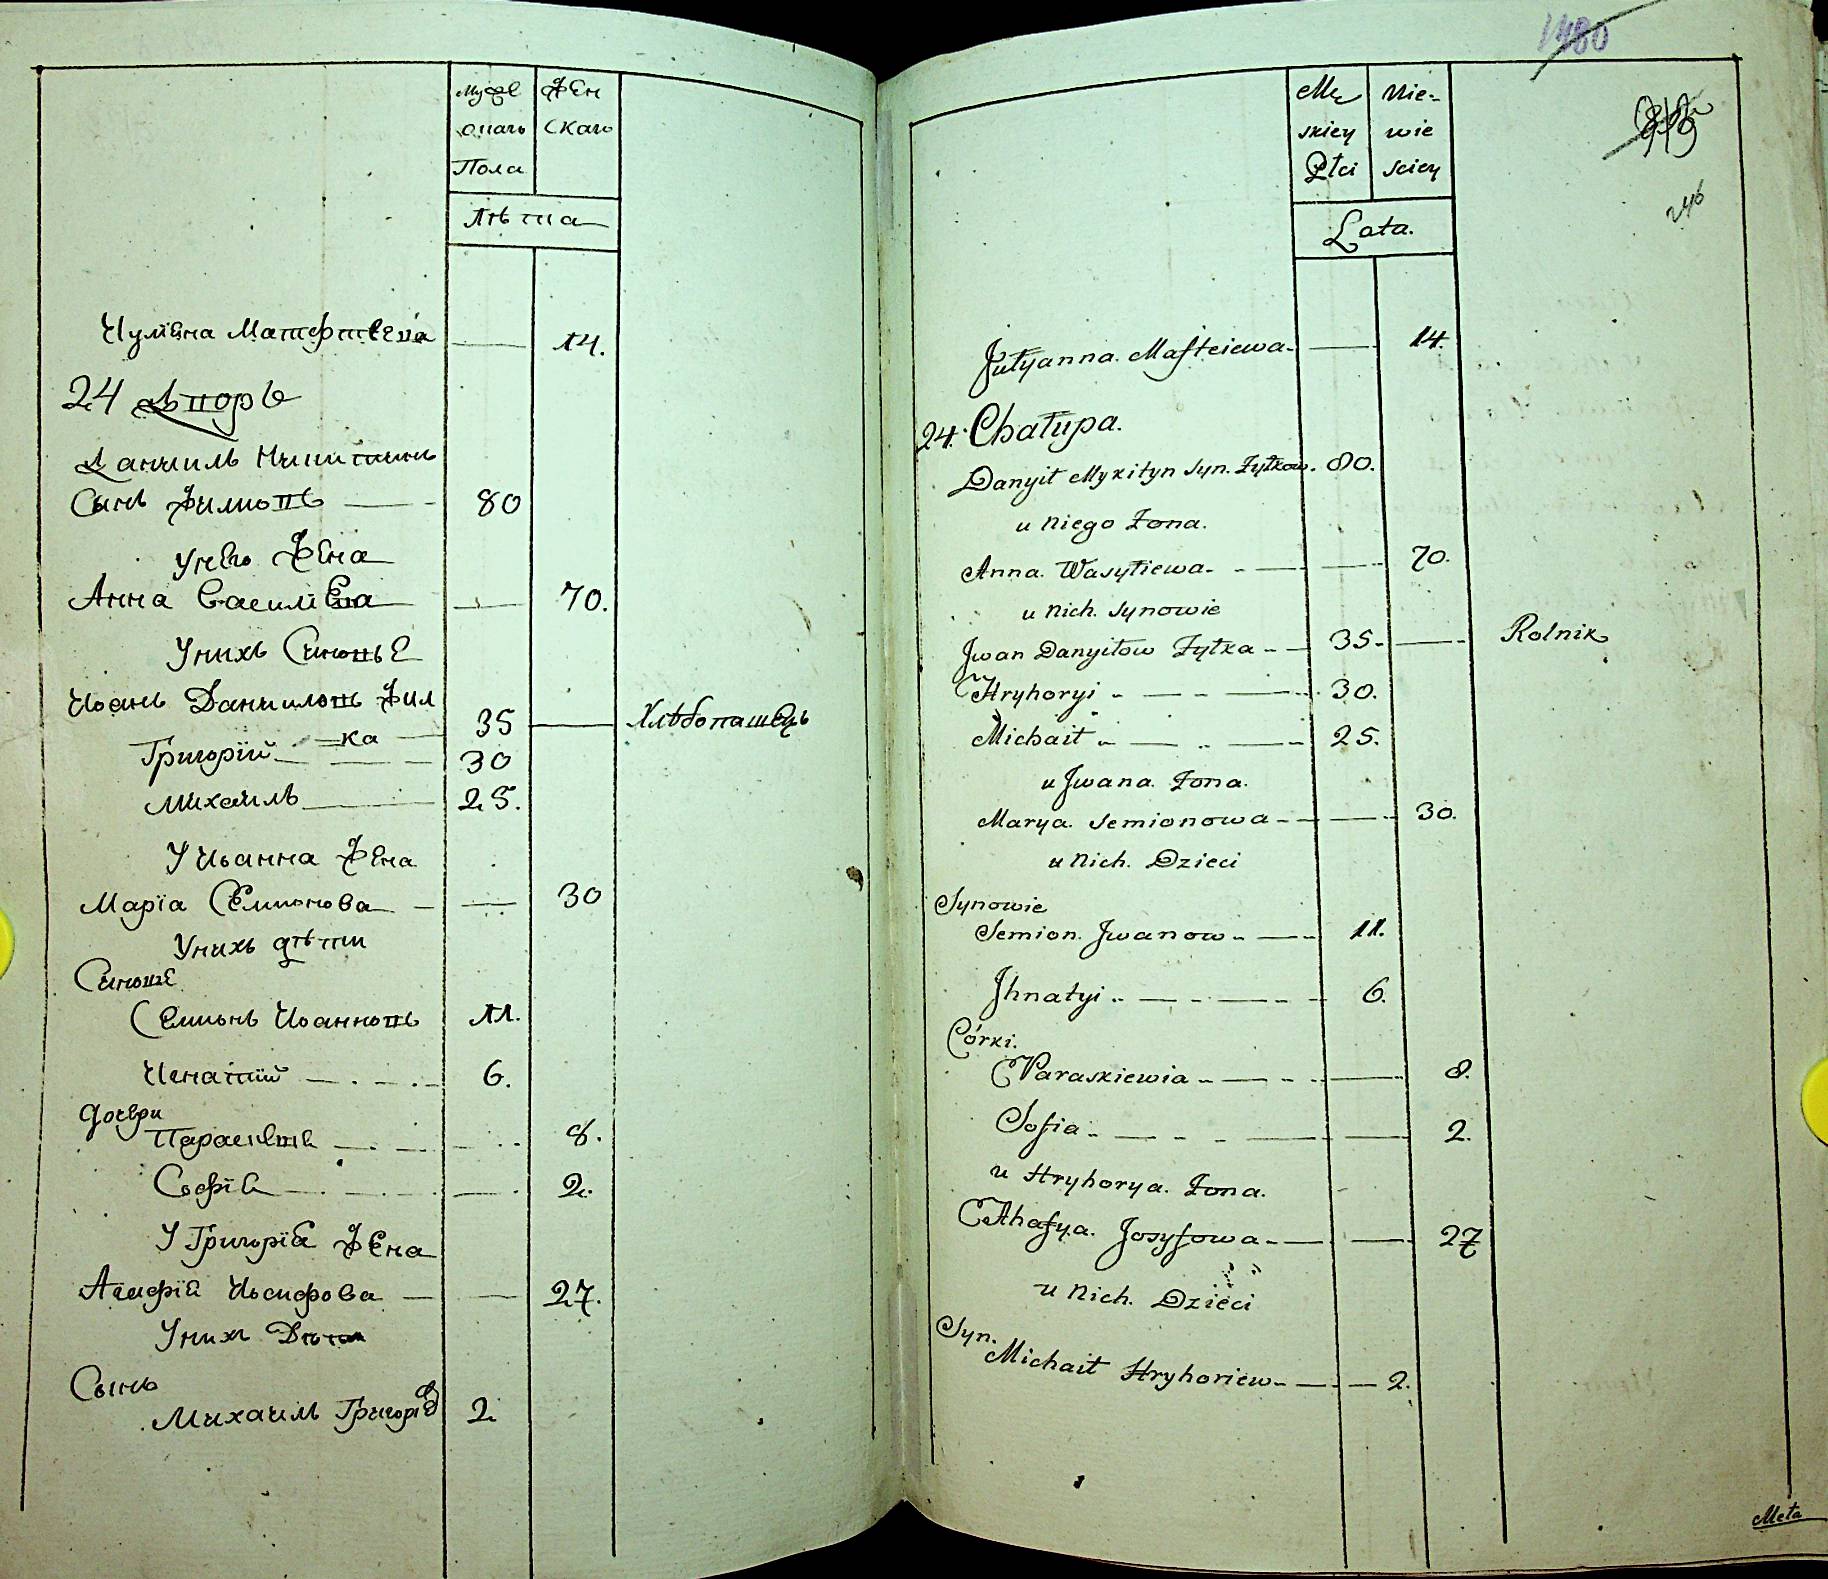 Муже Жен
скаго скаго
Пола
Лѣта
Иулiена Матфтвеиа 14.
24 Дворъ
Даниилъ Никитинъ
Сынъ Филковъ 80
Унего Жена
Анна Василева 70.
Унихъ Синовье
Иоанъ Даниловъ Фил
ка 35 Хлѣбопашецъ
Григорiй 30
Михаилъ 25.
У Иоанна Жена
Марiа Семионова 30
Унихъ дѣти
Синове
Семионъ Иоанновъ 11.
Игнатiй 6.
дочери
Параскева 8.
Софiа 2.
У Григорiа Жена
Агафiа Иосифова 27.
Унихъ Дѣти
Сынъ
Михаилъ Григорiев 2
1480
246
Mę Nie-
skiey wie
Płci sciey
Lata.
Julyanna. Mafteiewa 14.
24. Chałupa.
Danyił Mykityn Syn. Fylkow. 80.
u Niego Żona.
Anna. Wasyliewa 70.
u Nich. Synowie
Jwan Danyiłow Fylka 35. Rolnik
Hryhoryi 30.
Michaił 25.
u Jwana. Żona.
Marya. Semionowa 30.
u Nich. Dzieci
Synowie
Semion. Jwanow 11.
Jhnatyi 6.
Córki.
Paraskiewia 8.
Sofia 2.
u Hryhorya. Żona.
Ahafya. Josyfowa 27
u Nich. Dzieci
Syn.
Michaił Hryhoriew 2.
Meta